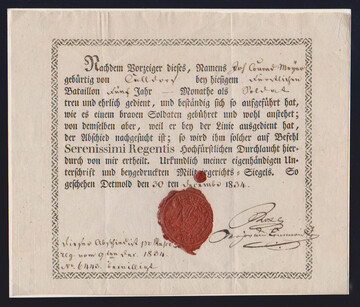 Nachdem Vorzeiger dieses, Namens Conrad Meyer
gebürtig von bey hiesigem Fürstlichen
Bataillon Fünf Jahr — Monathe als Soldat
treu und ehrlich gedient, und beständig sich so aufgeführt hat,
wie es einem braven Soldaten gebührt und wohl anstehet;
von demselben aber, weil er bey der Linie ausgedient hat,
der Abschied nachgesucht ist; so wird ihm solcher auf Befehl
Serenissimi Regentis Hochfürstlichen Durchlaucht hier-
durch von mir ertheilt. Urkundlich meiner eigenhändigen Un-
terschrift und beygedruckten Militairgerichts-Siegels. So
geschehen Detmold den 30 ten December 1834.
Dieser Abschied ist
reg. vom 9ten Dec. 1834
No 6440